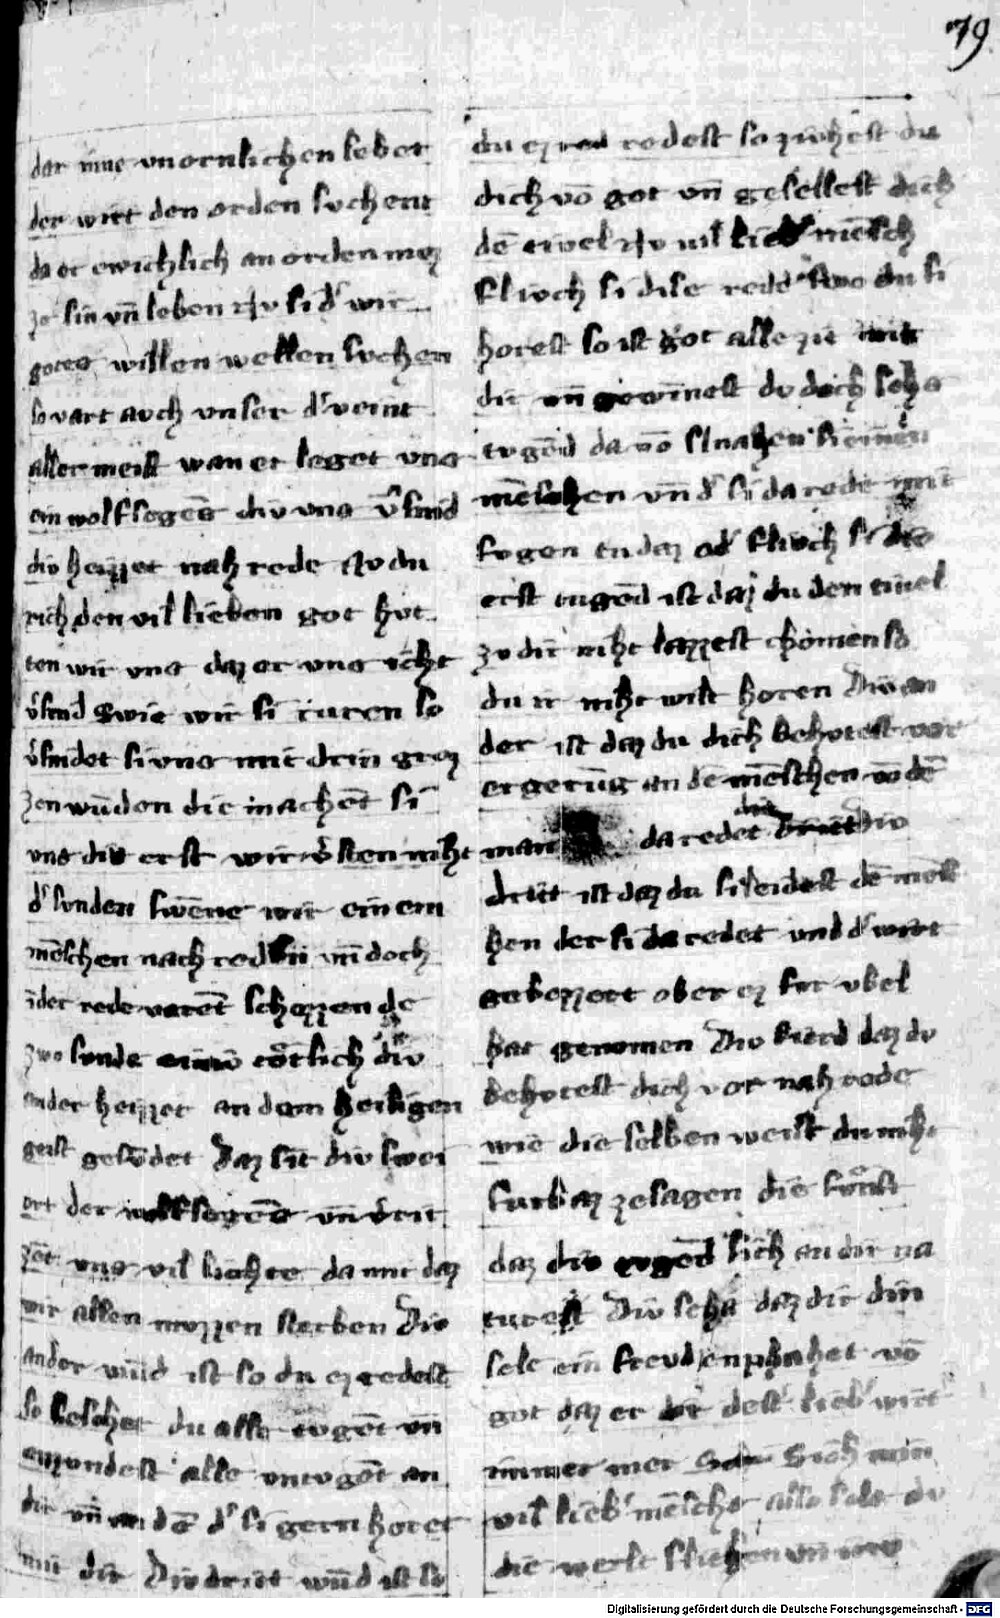 79
der mue vnornlichen leber
der wirt den orden svchent
da er ewichlich an orden mvz
ze sin vn̄ leben Nv si d᷑ wir
gotes willen wellen svchen
so vart avch vnser d᷑ veint
aller meist wan er leget vns
ein wolf segēs div vns v᷑snid
div heizzet nah rede Nv du
rich den vil lieben got hvt
ten wir vns daz er vns icht
v᷑snid Swie wir si rvren so
v᷑snidet si vns mit drin groz
zen wūden die machēt si
vns div erst wir v᷑sten niht
d᷑ svnden swēne wir einem
mēschen nach reden vn̄ doch
ider rede varēt schezzen de
zwo svnde totlich div
ander heizzet an dem heiligen
geist gesv̄det Daz sit div swei
ort der wolfsegēs vn̄
zet vns vil liehte da mit daz
wir allen mvzzen sterben Div
ander wūd ist so du ez redest
so leschet du alle tvgēt vn̄
enzvndest alle vntvgēt an
dir vn̄ an dē d᷑ si gern horet
mit dir Div drit wūd ist so
du ez redest so zivhest du
dich vō got vn̄ gesellest dich
dē tivel Nv vil lieb᷑ mēsch
flivch si dise rede swo du si
horest so ist got alle zit mit
dir vn̄ gewinnest dv doch sehs
tvgēd da vō slnahen si einen
mēschen vn̄ d᷑ si da rede mit
fvgen tu daz od᷑ flivch si die
erst tugēd ist daz du den tivel
zv dir niht lazzest chomen so
du ir niht wilt horen Div an
der ist daz du dich behvtest vor
ergerūg an dē mēschen vō dē
man da redet Div
dritt ist daz du si leidest dē mēs
hen der si da redet vnd d᷑ wirt
gebezzert ober ez fvr vbel
hat genomen Div vierd daz dv
behvtest dich vor nah rede
wie die selben weist du niht
fvrbaz zesagen die fvnft
daz div tvgēd sich an dir na
turest Div sehst daz dir din
sele ein frevd enphahet vō
got daz er dir dest lieb᷑ wirt
immer mer Sich min
vil lieb᷑ mēsche also solt dv
die werlt fliehen vn̄